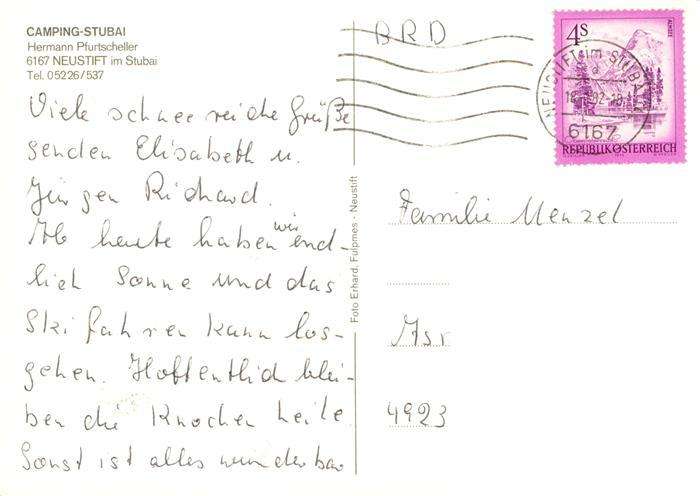 CAMPING-STUBAI
Hermann Pfurtscheller
6167 NEUSTIFT im Stubai
Tel. 05226/537
Viele schneereiche Grüße
senden Elisabeth u.
Jürgen Richard.
Ab heute haben wir end-
lich Sonne und das
Skifahren kann los-
gehen. Hoffentlich blei-
ben die Knochen heile.
Sonst ist alles wunderbar
Foto Erhard, Fulpmes - Neustift
BRD
4S
ALMSEE
NEUSTIFT im STUBAITAL
6167
REPUBLIK ÖSTERREICH
Familie Menzel
4923